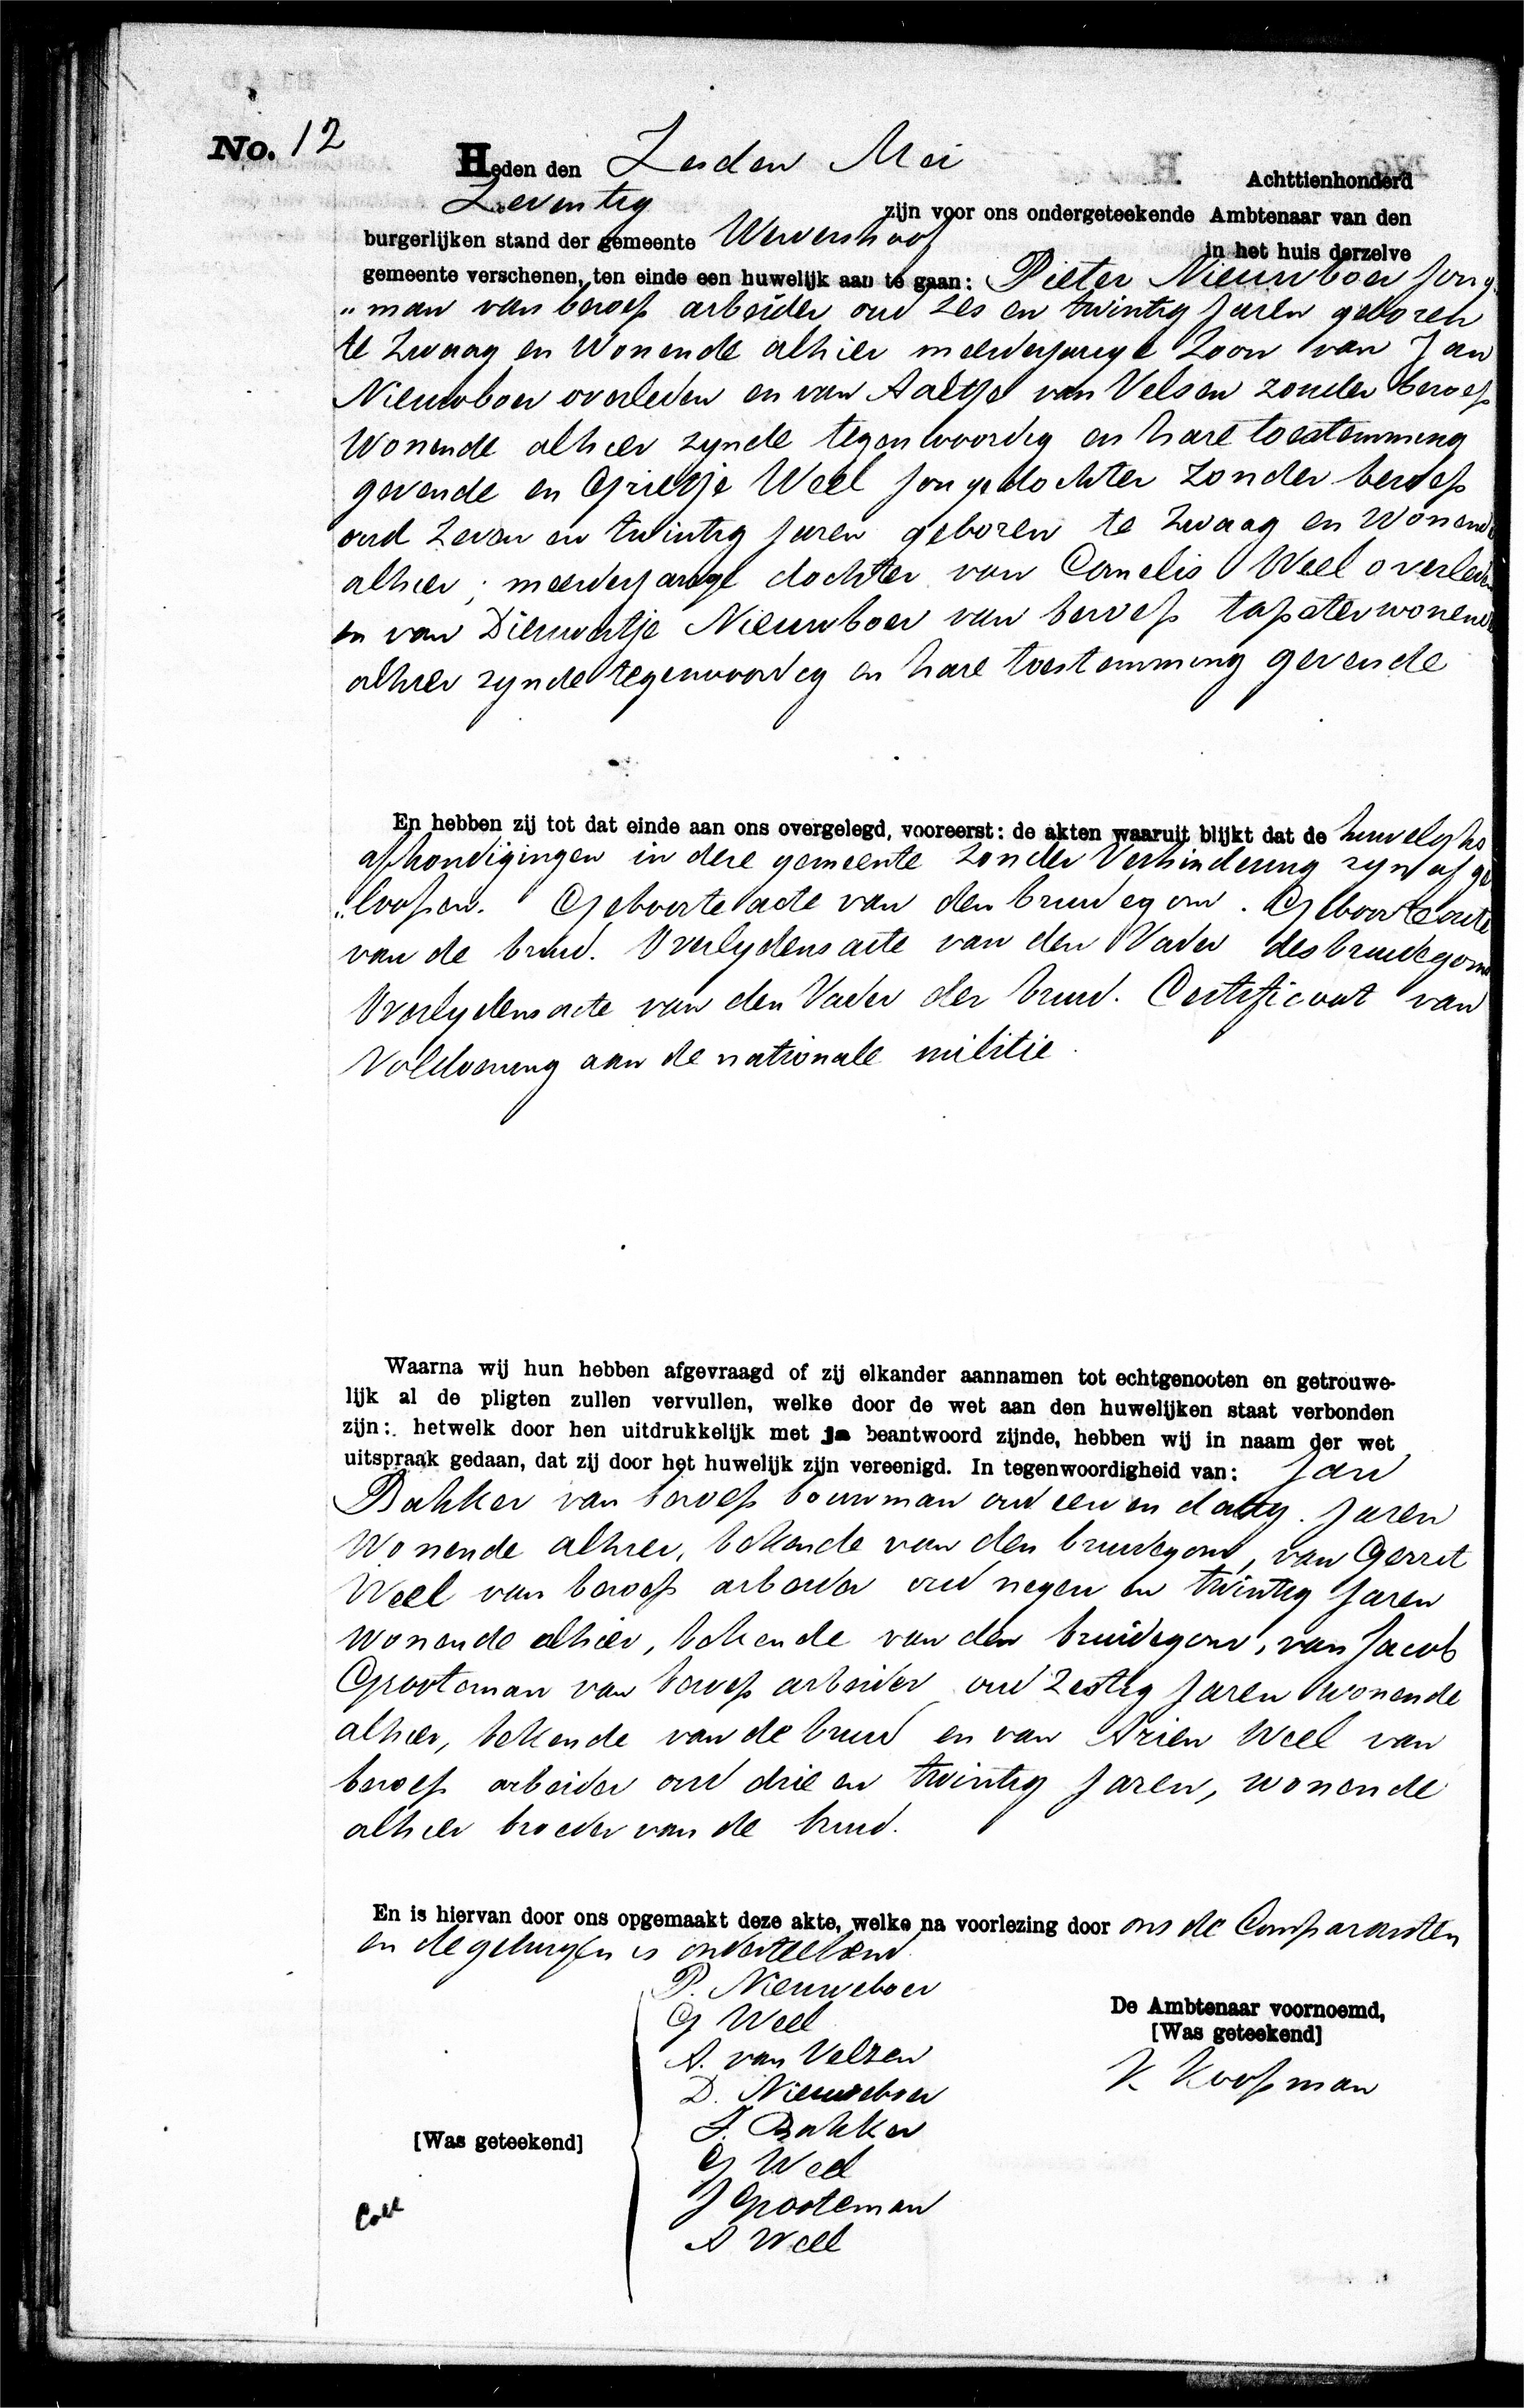 No. 12
Heden den Zesden Mei Achttienhonderd
Zeventig zijn voor ons ondergeteekende Ambtenaar van den
burgerlijken stand der gemeente Wervershoof in het huis derzelve
gemeente verschenen, ten einde een huwelijk aan te gaan: Pieter Nieuwboer Jong
„man van beroep arbeider oud zes en twintig Jaren geboren
te Zwaag en Wonende alhier meerderjarige Zoon van Jan
Nieuwboer overleden en van Aaltje van Velsen zonder beroep
Wonende alhier zynde tegenwoordig en hare toestemming
gevende en Grietje Weel Jongedochter zonder beroep
oud Zeven en twintig Jaren geboren te Zwaag en Wonende
alhier; meerderjarige dochter van Cornelis Weel overleden
en van Dieuwertje Nieuwboer van beroep tapster wonende
alhier zynde tegenwoordig en hare toestemming gevende
En hebben zij tot dat einde aan ons overgelegd, vooreerst: de akten waaruit blijkt dat de huwelyks
afkondigingen in deze gemeente zonder Verhindering zyn afge
„loopen. Geboorteacte van den bruidegom. Geboorteacte
van de bruid. Overlydensacte van den Vader des bruidegoms
Overlydensacte van den Vader der bruid. Certificaat van
Voldoening aan de nationale militie.
Waarna wij hun hebben afgevraagd of zij elkander aannamen tot echtgenooten en getrouwe-
lijk al de pligten zullen vervullen, welke door de wet aan den huwelijken staat verbonden
zijn: hetwelk door hen uitdrukkelijk met ja beantwoord zijnde, hebben wij in naam der wet
uitspraak gedaan, dat zij door het huwelijk zijn vereenigd. In tegenwoordigheid van: Jan
Bakker van beroep bouwman oud een en dertig Jaren
Wonende alhier, bekende van den bruidegom, van Gerrit
Weel van beroep arbeider oud negen en twintig Jaren
wonende alhier, bekende van den bruidegom, van Jacob
Grooteman van beroep arbeider oud Zestig Jaren Wonende
alhier, bekende van de bruid en van Arien Weel van
beroep arbeider oud drie en twintig Jaren, wonende
alhier broeder van de bruid.
En is hiervan door ons opgemaakt deze akte, welke na voorlezing door ons de Comparanten
en de getuigen is onderteekend.
P. Nieuweboer
G Weel
A. van Velzen
D. Nieuweboer
J. Bakker
G Weel
J Grooteman
A Weel
[Was geteekend]
De Ambtenaar voornoemd,
[Was geteekend]
K Koopman
Coll